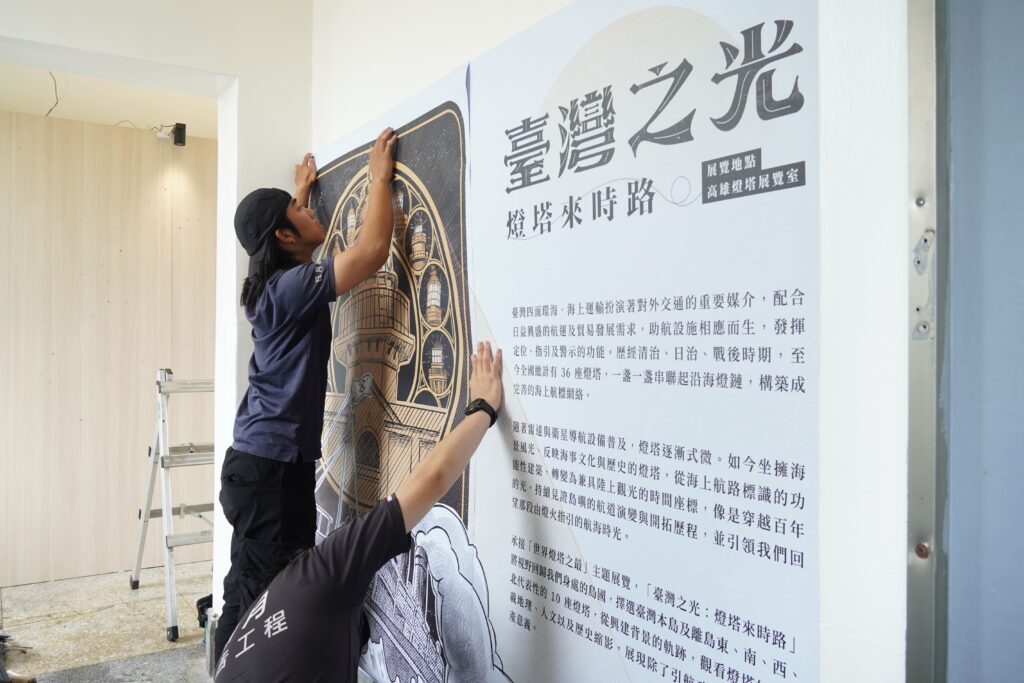 臺灣之光
燈塔來時路
展覽地點
高雄燈塔展覽室
臺灣四面環海，海上運輸扮演著對外交通的重要媒介，配合
日益興盛的航運及貿易發展需求，助航設施相應而生，發揮
定位、指引及警示的功能。歷經清治、日治、戰後時期，至
今全國總計有 36 座燈塔，一盞一盞串聯起沿海燈鏈，構築成
完善的海上航標網絡。
隨著雷達與衛星導航設備普及，燈塔逐漸式微。如今坐擁海
景風光、反映海事文化與歷史的燈塔，從海上航路標識的功
能性建築，轉變為兼具陸上觀光的時間座標，像是穿越百年
的光，持續見證島嶼的航道演變與開拓歷程，並引領我們回
望那段由燈火指引的航海時光。
承接「世界燈塔之最」主題展覽，「臺灣之光：燈塔來時路」
將視野回歸我們身處的島國，擇選臺灣本島及離島東、南、西、
北代表性的 10 座燈塔，從興建背景的軌跡，觀看燈塔
義地理、人文以及歷史縮影，展現除了引航
產意義。
工程